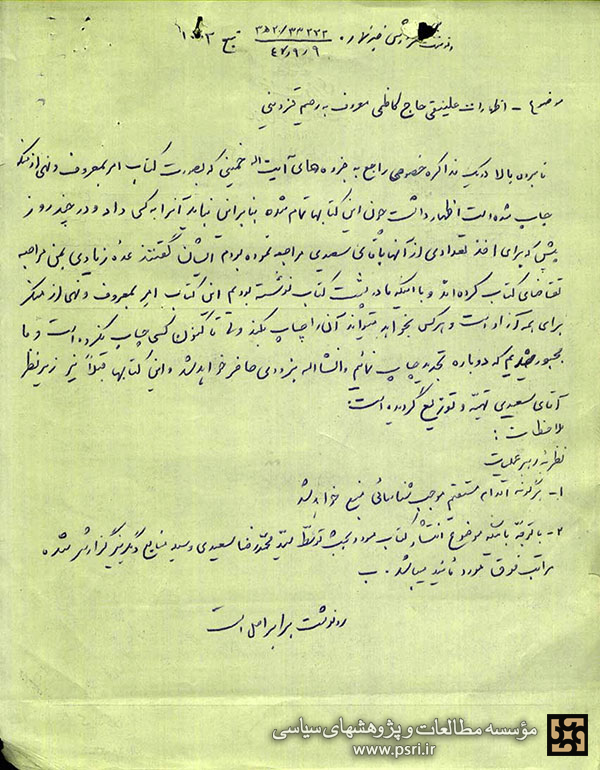 رونوشت گزارش خبر شماره ۳۳۲۷۳/۳۵۲ منبع ۱۰۰۳
۴۷/۹/۹
موضوع - اظهارات علینقی حاج کاظمی معروف به رحیم قزوینی
نامبرده بالا در یک مذاکره خصوصی راجع به جزوه های آیت اله خمینی که بصورت کتاب امر بمعروف و نهی از منکر
چاپ شده است اظهار داشت چون این کتابها تمام شده بنابراین نباید آنرا به کسی داد و در چند روز
پیش که برای اخذ تعدادی از آنها باقای سعیدی مراجعه نموده بودم ایشان گفتند عده زیادی بمن مراجعه
تقاضای کتاب کرده اند و با اینکه ما در پشت کتاب نوشته بودیم این کتاب امر بمعروف و نهی از منکر
برای همه آزاد است و هر کس بخواهد میتواند آن را چاپ بکند ولی تا کنون کسی چاپ نکرده است و ما
مجبور شدیم که دوباره تجدید چاپ نمائیم و انشااله بزودی حاضر خواهد شد و این کتابها قبلاً نیز زیر نظر
آقای سعیدی تهیه و توزیع گردیده است.
ملاحظات :
نظریه رهبر عملیات
۱- هرگونه اقدام مستقیم موجب شناسائی منبع خواهد شد
۲- با توجه باینکه موضوع انتشار کتاب مورد بحث توسط سید محمدرضا سعیدی وسیله منابع دیگر نیز گزارش شده
مراتب فوق مورد تائید میباشد. ب
رونوشت برابر اصل است
مؤسسه مطالعات و پژوهشهای سیاسی
www.psri.ir